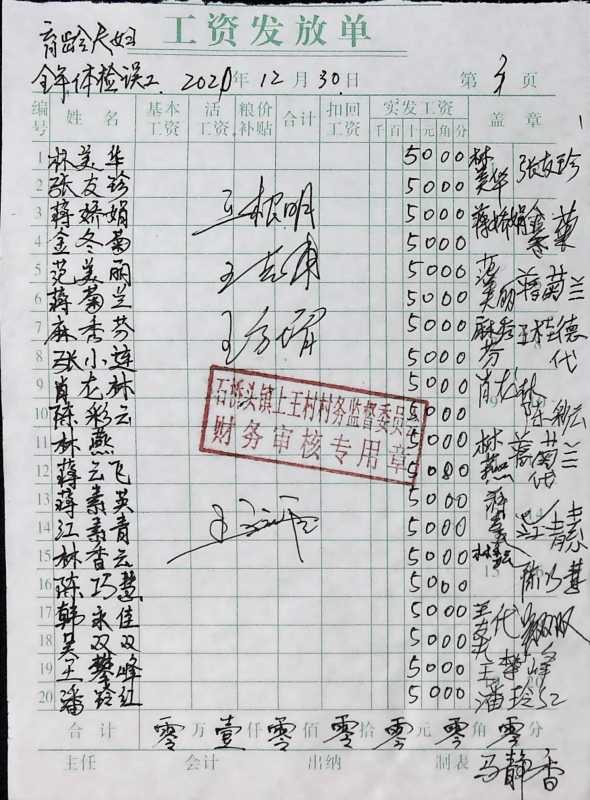 工资发放单
育龄夫妇
全年体检误工 2020年12月30日 第 页
编号 姓名 基本工资 活工资 粮价补贴 合计 扣回工资 实发工资 千百十元角分 盖章
1 林美华 5000 林美华 张友珍
2 张友珍 5000
3 蒋娇娟 王根明 5000 蒋娇娟 金冬菊
4 金冬菊 5000
5 范美丽 5000 范美丽 蒋菊兰
6 蒋菊兰 5000
7 麻秀芬 5000 麻秀芬 王桂德代
8 张小连 5000
9 肖龙林 5000 肖龙林 陈彩云
10 陈彩云 5000
石桥头镇上王村村务监督委员会
财务审核专用章
11 林燕 5000 林燕 蒋菊兰代
12 蒋云飞 5000
13 蒋素英 5000
14 江素青 5000
15 林香云 5000
16 陈巧慧 5000 陈巧慧
17 韩永佳 5000
18 吴双双 5000 吴双双
19 王攀峰 5000 王攀峰
20 潘玲红 5000 潘玲红
合计 零万壹仟零佰零拾零元零角零分
主任 会计 出纳 制表 马静香